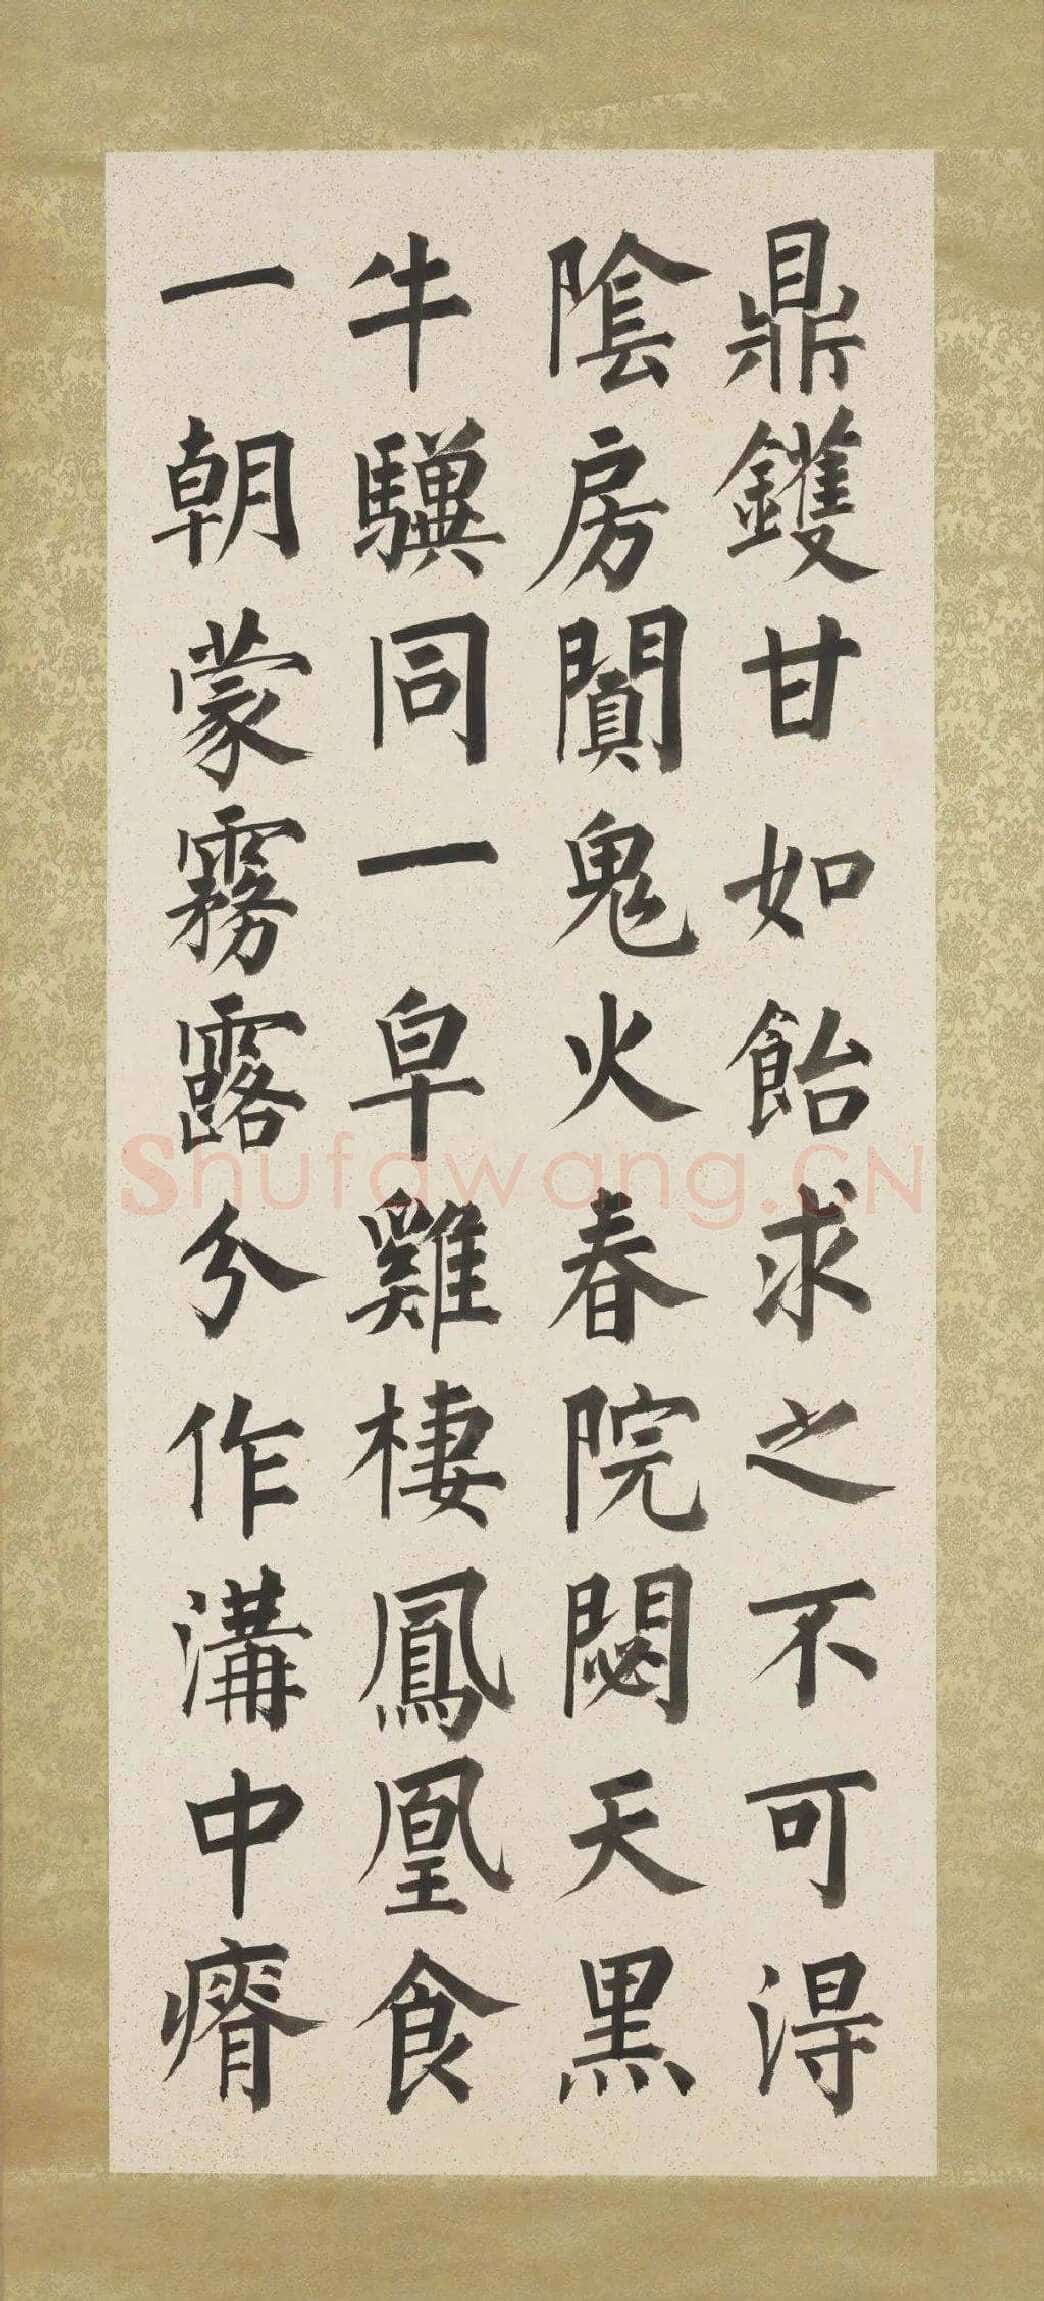 鼎鑊甘如飴求之不可得
陰房闃鬼火春院閟天黑
牛驥同一皁雞棲鳳凰食
一朝蒙霧露分作溝中瘠
Shufawang.CN